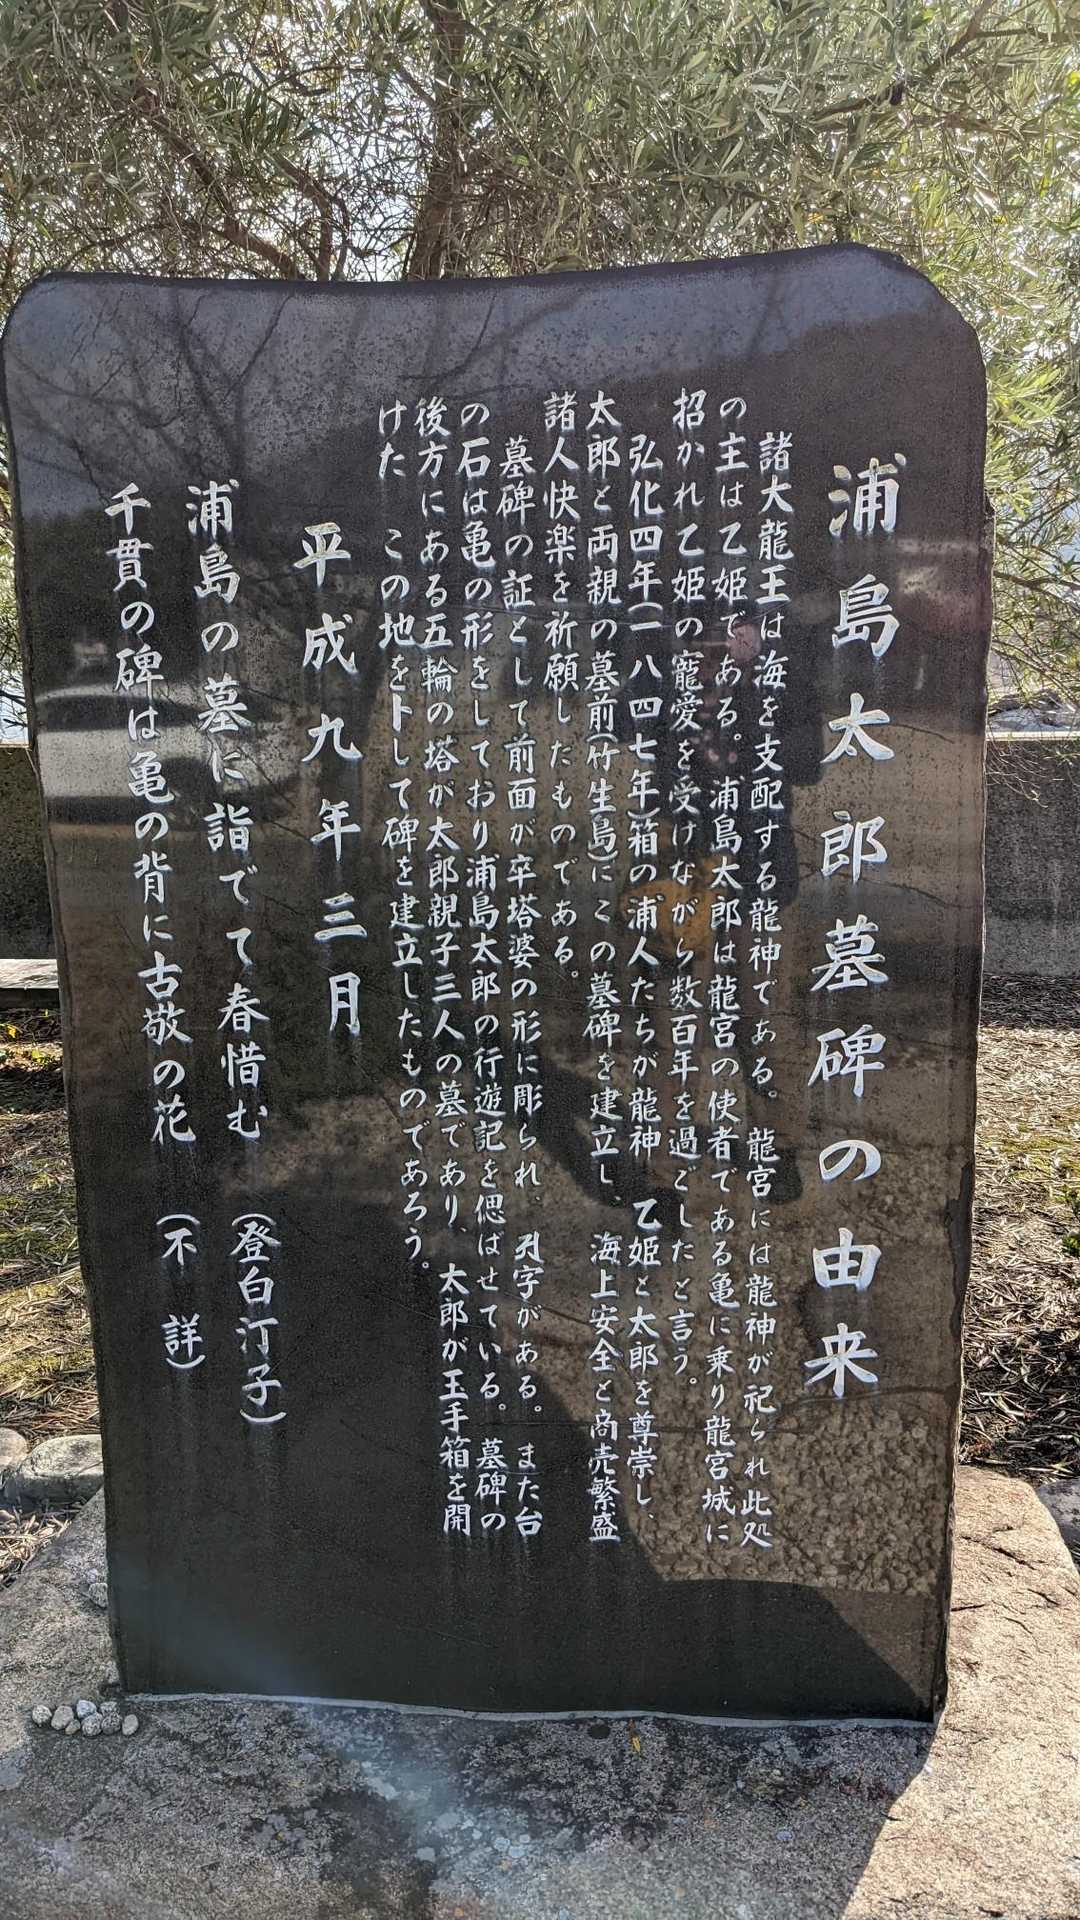 浦島太郎墓碑の由来
諸大龍王は海を支配する龍神である。龍宮には龍神が祀られ此処
の主は乙姫である。浦島太郎は龍宮の使者である亀に乗り龍宮城に
招かれ乙姫の寵愛を受けながら数百年を過ごしたと言う。
弘化四年(一八四七年)箱の浦人たちが龍神 乙姫と太郎を尊崇し、
太郎と両親の墓前(竹生島)にこの墓碑を建立し、海上安全と商売繁盛
諸人快楽を祈願したものである。
墓碑の証として前面が卒塔婆の形に彫られ、刋字がある。また台
の石は亀の形をしており浦島太郎の行遊記を偲ばせている。墓碑の
後方にある五輪の塔が太郎親子三人の墓であり、太郎が玉手箱を開
けた この地を卜して碑を建立したものであろう。
平成九年三月
浦島の墓に詣でて春惜む (登白汀子)
千貫の碑は亀の背に古敬の花 (不詳)